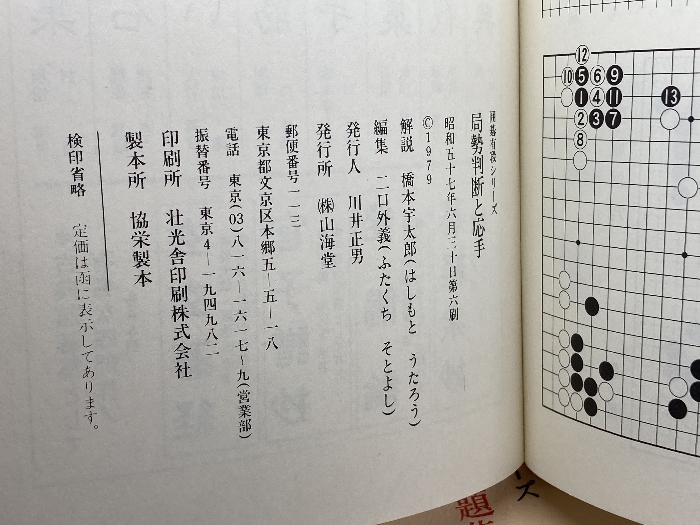 囲碁有段シリーズ
局勢判断と応手
昭和五十七年六月三十日第六刷
©1979
解説 橋本宇太郎(はしもと うたろう)
編集 二口外義(ふたくち そとよし)
発行人 川井正男
発行所 ㈱山海堂
郵便番号一一三
東京都文京区本郷五―五―一八
電話 東京(03)八一六―一六一七~九(営業部)
振替番号 東京4―一九四九八二
印刷所 壮光舎印刷株式会社
製本所 協栄製本
検印省略 定価は函に表示してあります。
12
10 5 6 9
1 4 11 13
2 3 7
8
ズ
題